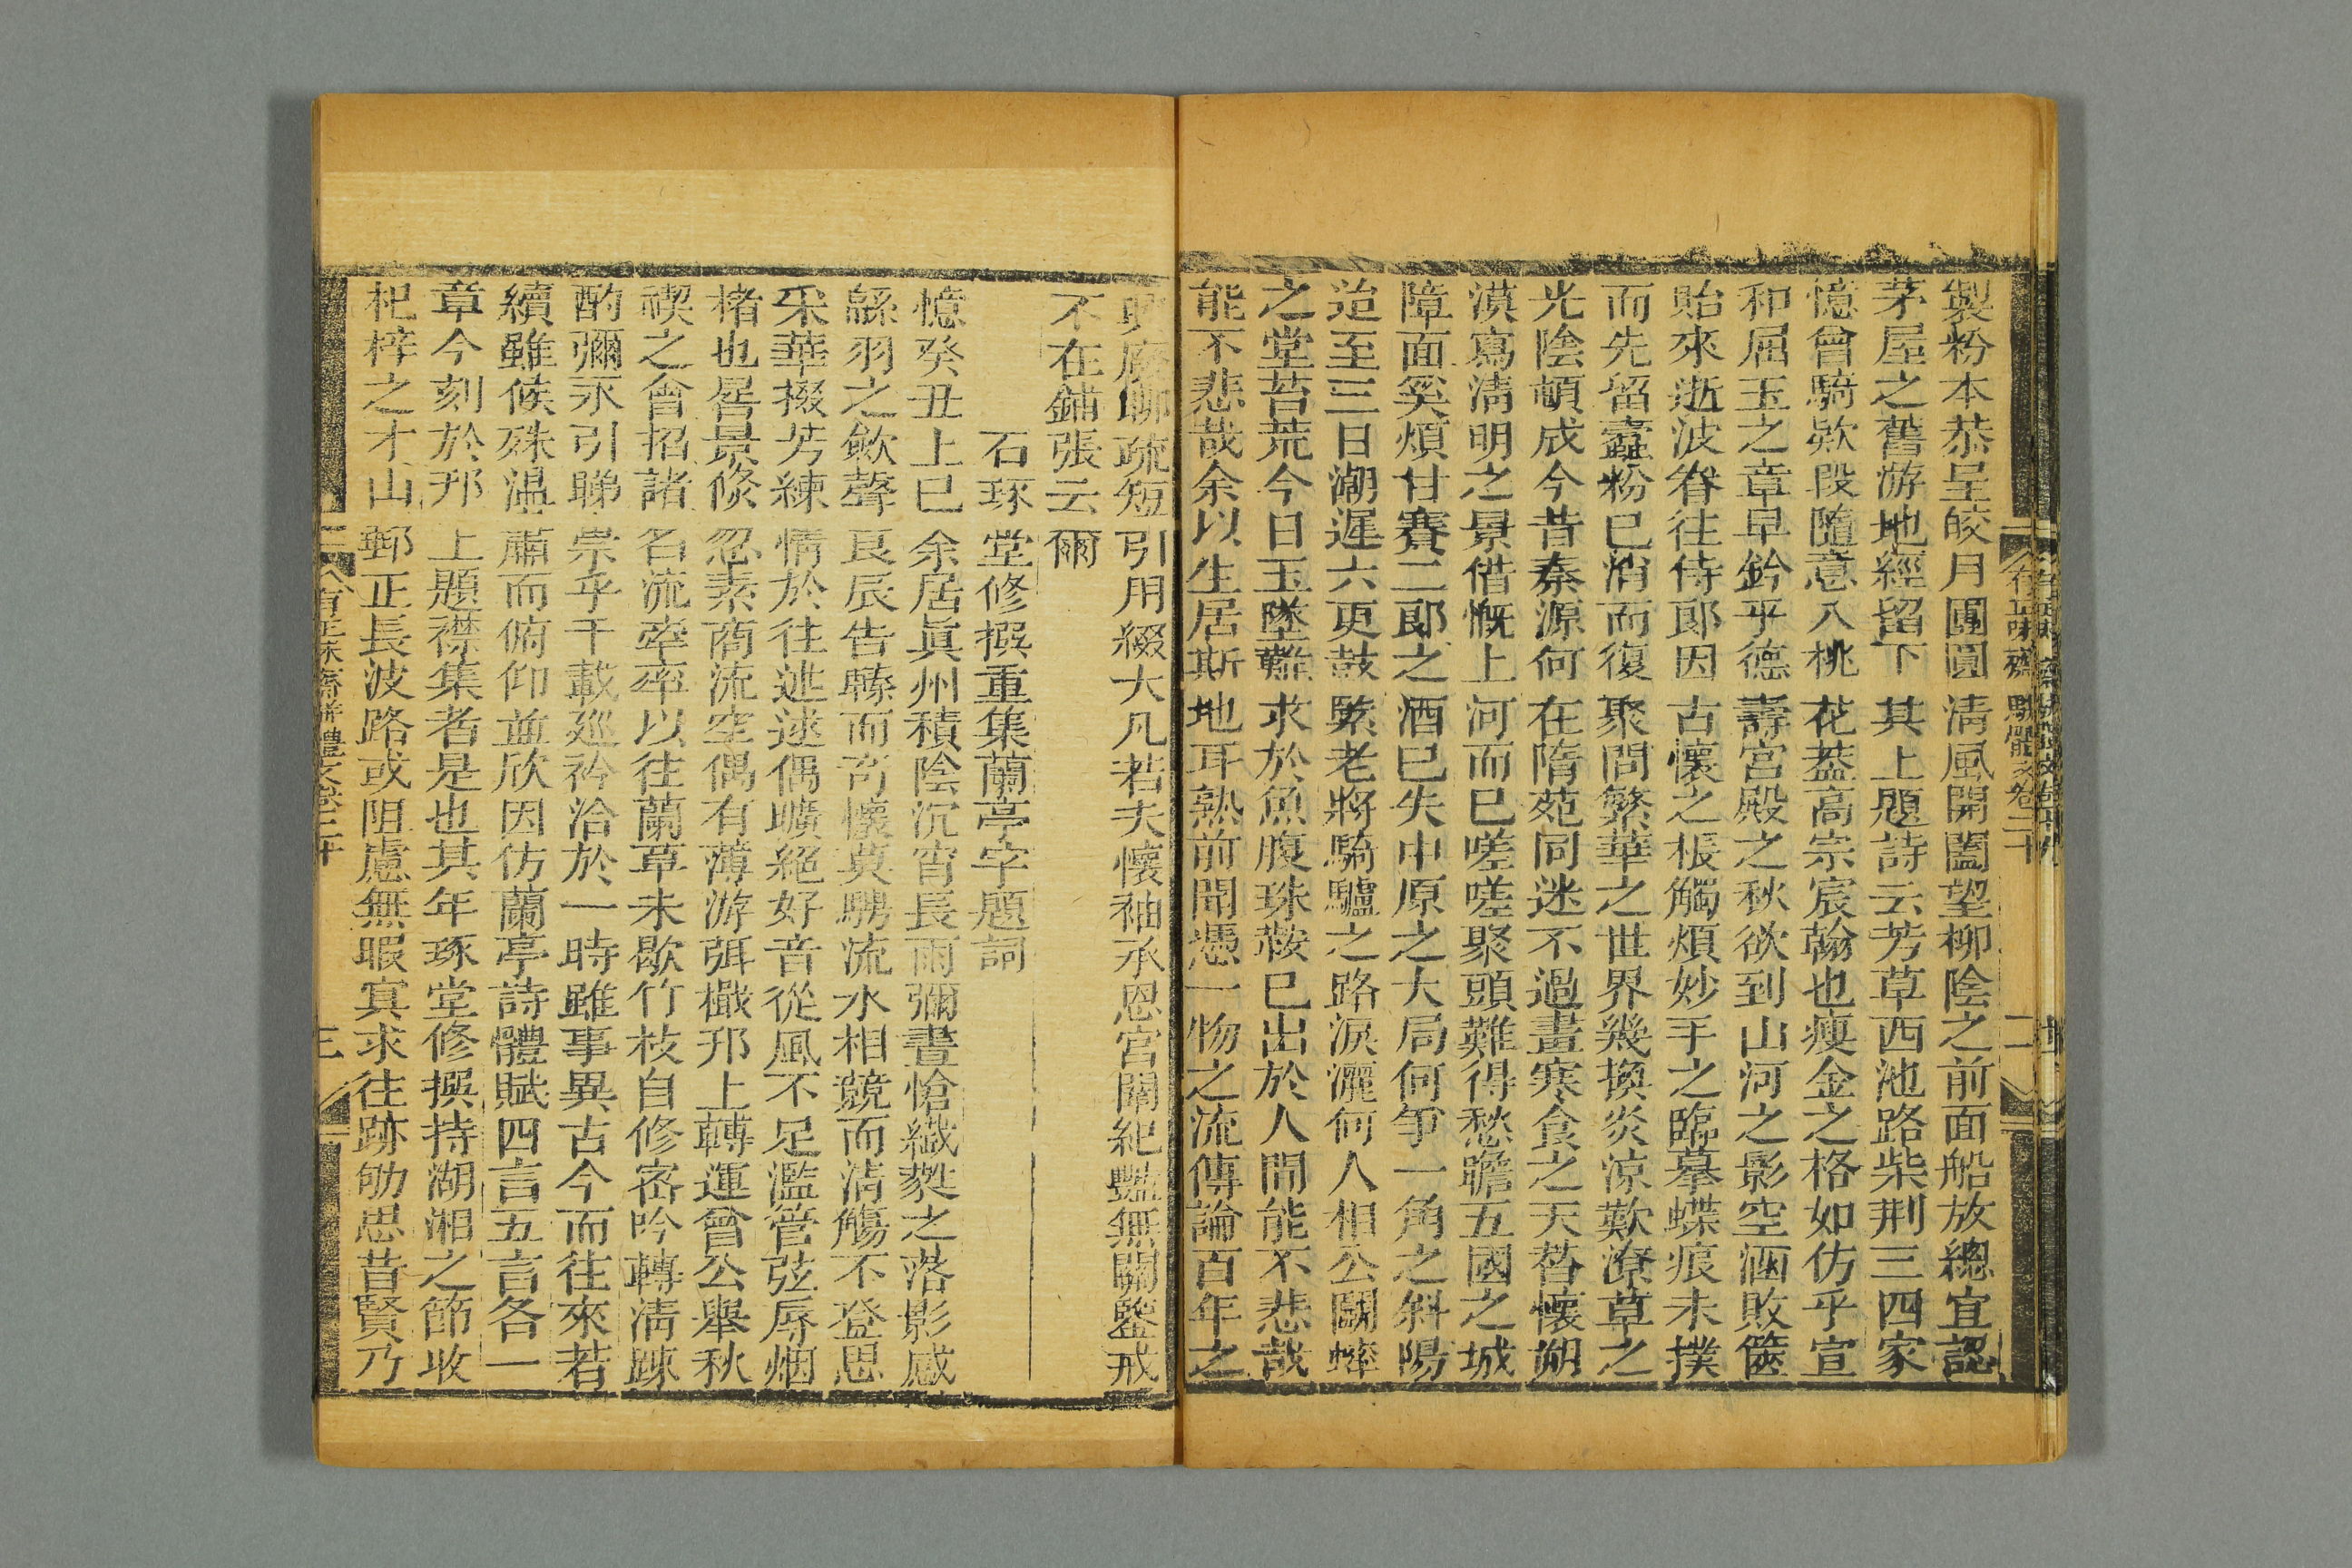 製粉本恭呈皎月團圓淸風開闔望柳陰之前面船放總宜認
茅屋之舊游地經留下其上題詩云芳草西池路柴荆三四家
憶曾騎欵段隨意入桃花葢高宗宸翰也瘦金之格如仿乎宣
和屈玉之章早鈐乎德壽宮殿之秋欲到山河之影空涵敗篋
貽來逝波眷往侍郞因古懷之棖觸煩妙手之臨摹蝶痕未撲
而先留蠧粉已消而復聚問繁華之世界幾換炎涼歎潦草之
光陰頓成今昔秦源何在隋苑同迷不過畫寒食之天萻懷朔
漠寫淸明之景借慨上河而已嗟嗟聚頭難得愁瞻五國之城
障面奚煩甘賽二郞之酒已失中原之大局何爭一角之斜陽
迨至三日潮遲六更鼓緊老將騎驢之路淚灑何人相公鬬蟀
之堂苔荒今日玉墜難求於魚腹珠荾已出於人間能不悲哉
能不悲哉余以生居斯地耳熟前聞憑一物之流傳論百年之
興廢聊疏短引用綴大凡若夫懷袖承恩宮闈紀豔無關鑒戒
不在鋪張云爾
石琢堂修撰重集蘭亭字題詞
憶癸丑上巳余居眞州積陰沉宵長雨彌晝愴纖蕤之落影感
緜羽之歛聲良辰告賖而奇懷莫騁流水相競而淸觴不登思
采華掇芳練情於往述逑偶曠絕好音從風不足濫管弦辱烟
楮也晷景倐忽素商流空偶有薄游弭檝邗上轉運曾公舉秋
禊之會招諸名流牽率以往蘭草未歇竹枝自修密吟轉淸踈
酌彌永引睇崇乎千載廵衿洽於一時雖事異古今而往來若
續雖候殊温肅而俯仰並欣因仿蘭亭詩體賦四言五言各一
章今刻於邗上題襟集者是也其年琢堂修撰持湖湘之節收
杞梓之才山郵正長波路或阻慮無暇寘求往跡劬思昔賢乃